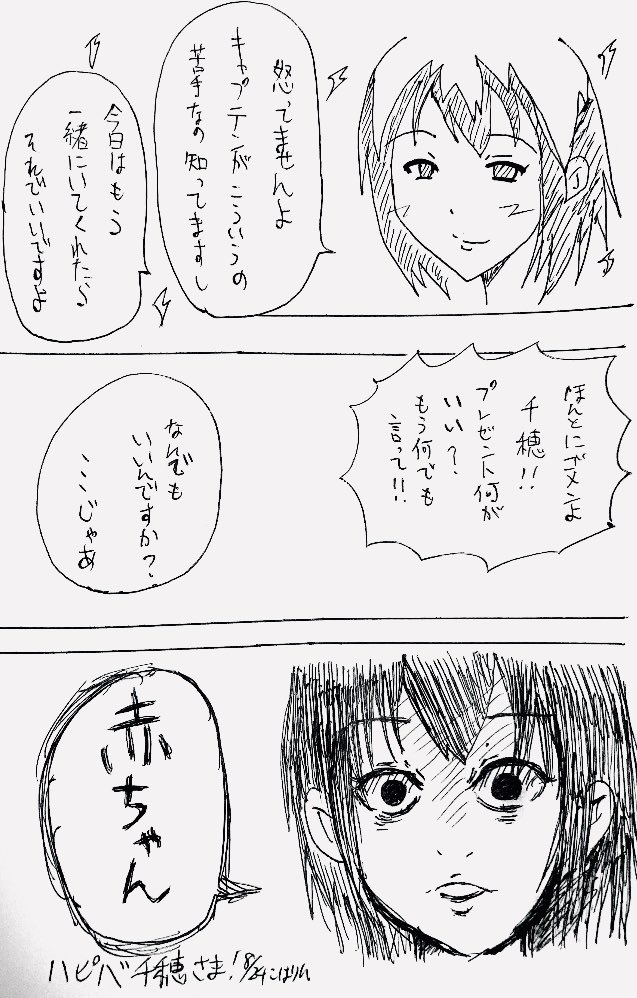 怒ってませんよ
キャプテンがこういうの
苦手なの知ってますし
今日はもう
一緒にいてくれたら
それでいいですよ
ほんとにゴメンよ
千穂!!
プレゼント何が
いい?
もう何でも
言って!!
なんでも
いいんですか?
・・・じゃあ
赤ちゃん
ハピバ千穂さま! 8/24こはりん